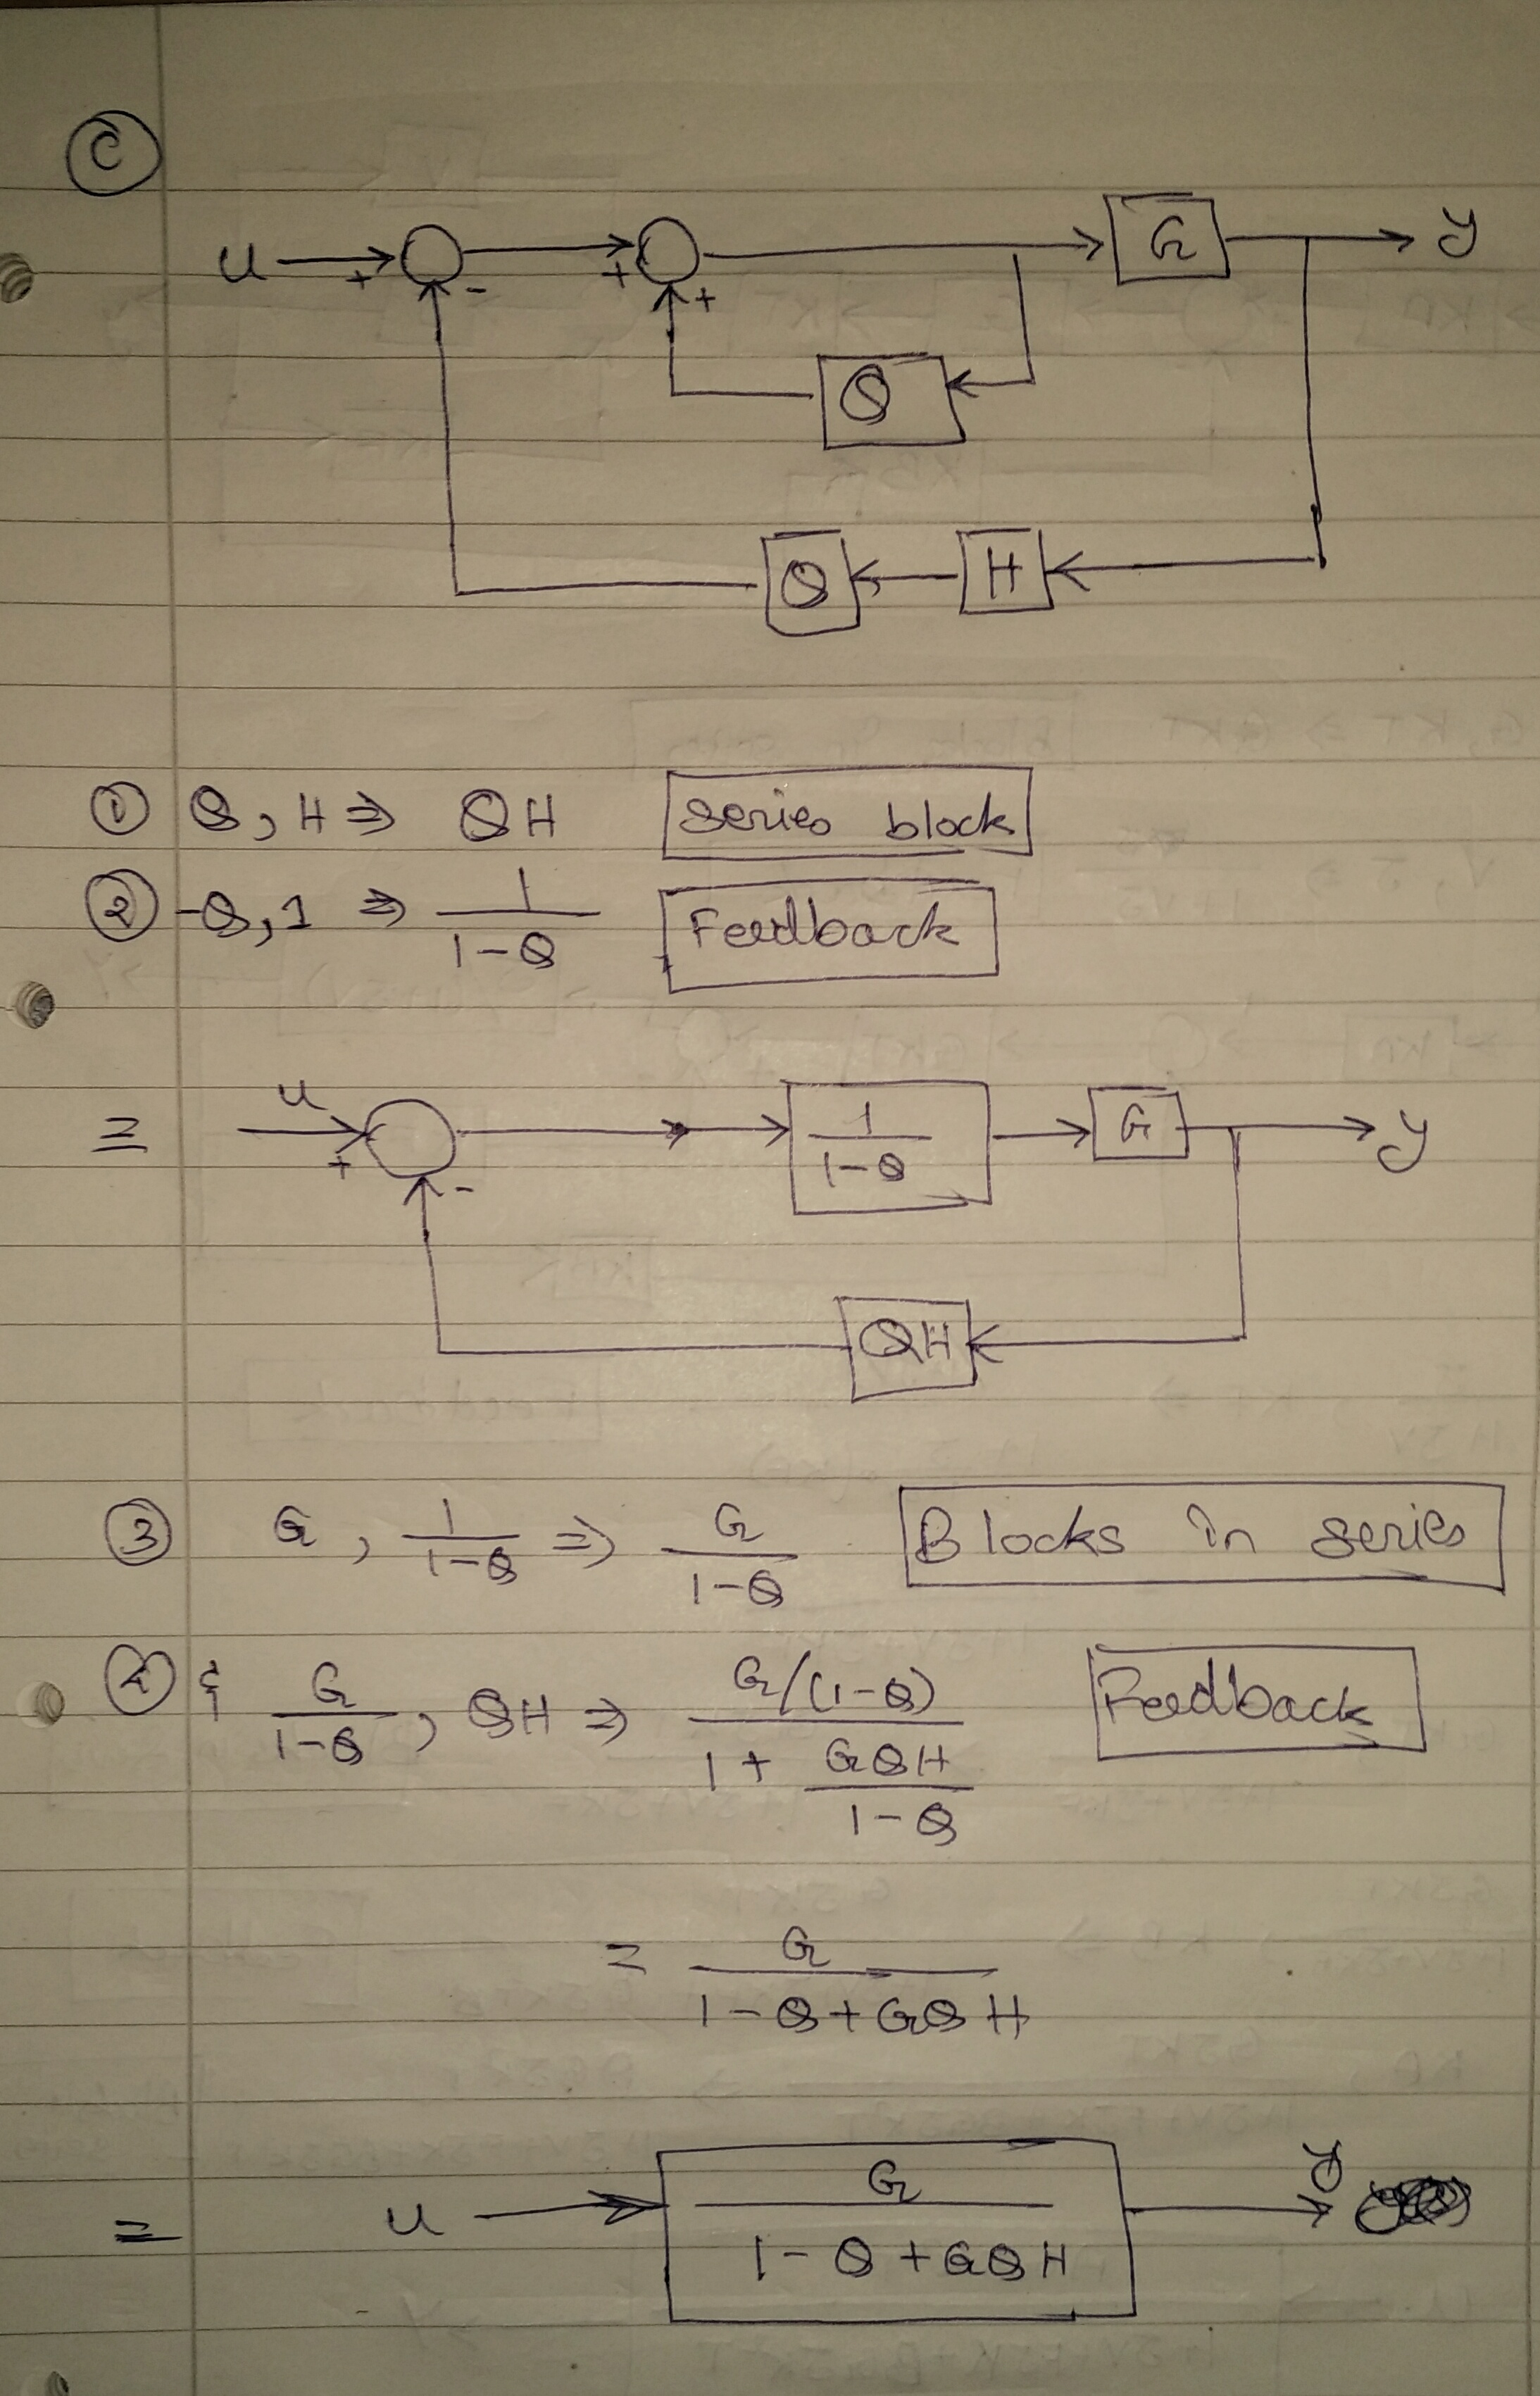 C
u + - + + G y
Q
Q H
① Q, H ⇒ QH series block
② -Q, 1 ⇒ 1/(1-Q) Feedback
= u + - 1/(1-Q) G y
QH
③ G, 1/(1-Q) ⇒ G/(1-Q) Blocks in series
④ & G/(1-Q), QH ⇒ (G/(1-Q))/(1 + GQH/(1-Q)) Feedback
= G/(1-Q+GQH)
= u G/(1-Q+GQH) y